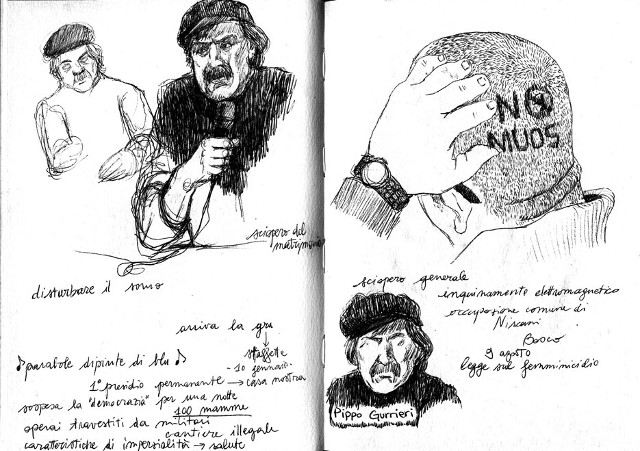 sciopero del
matrimonio
disturbare il sonno
arriva la gru
♪ parabole dipinte di blu ♪
staffette
- 10 gennaio
1° presidio permanente → casa nostra
sospesa la "democrazia" per una notte
100 mamme
operai travestiti da militari
cantiere illegale
caratteristiche di imperialità → salute
NO
MUOS
sciopero generale
inquinamento elettromagnetico
occupazione comune di
Niscemi
Bosco
9 agosto
legge sul femminicidio
Pippo Gurrieri